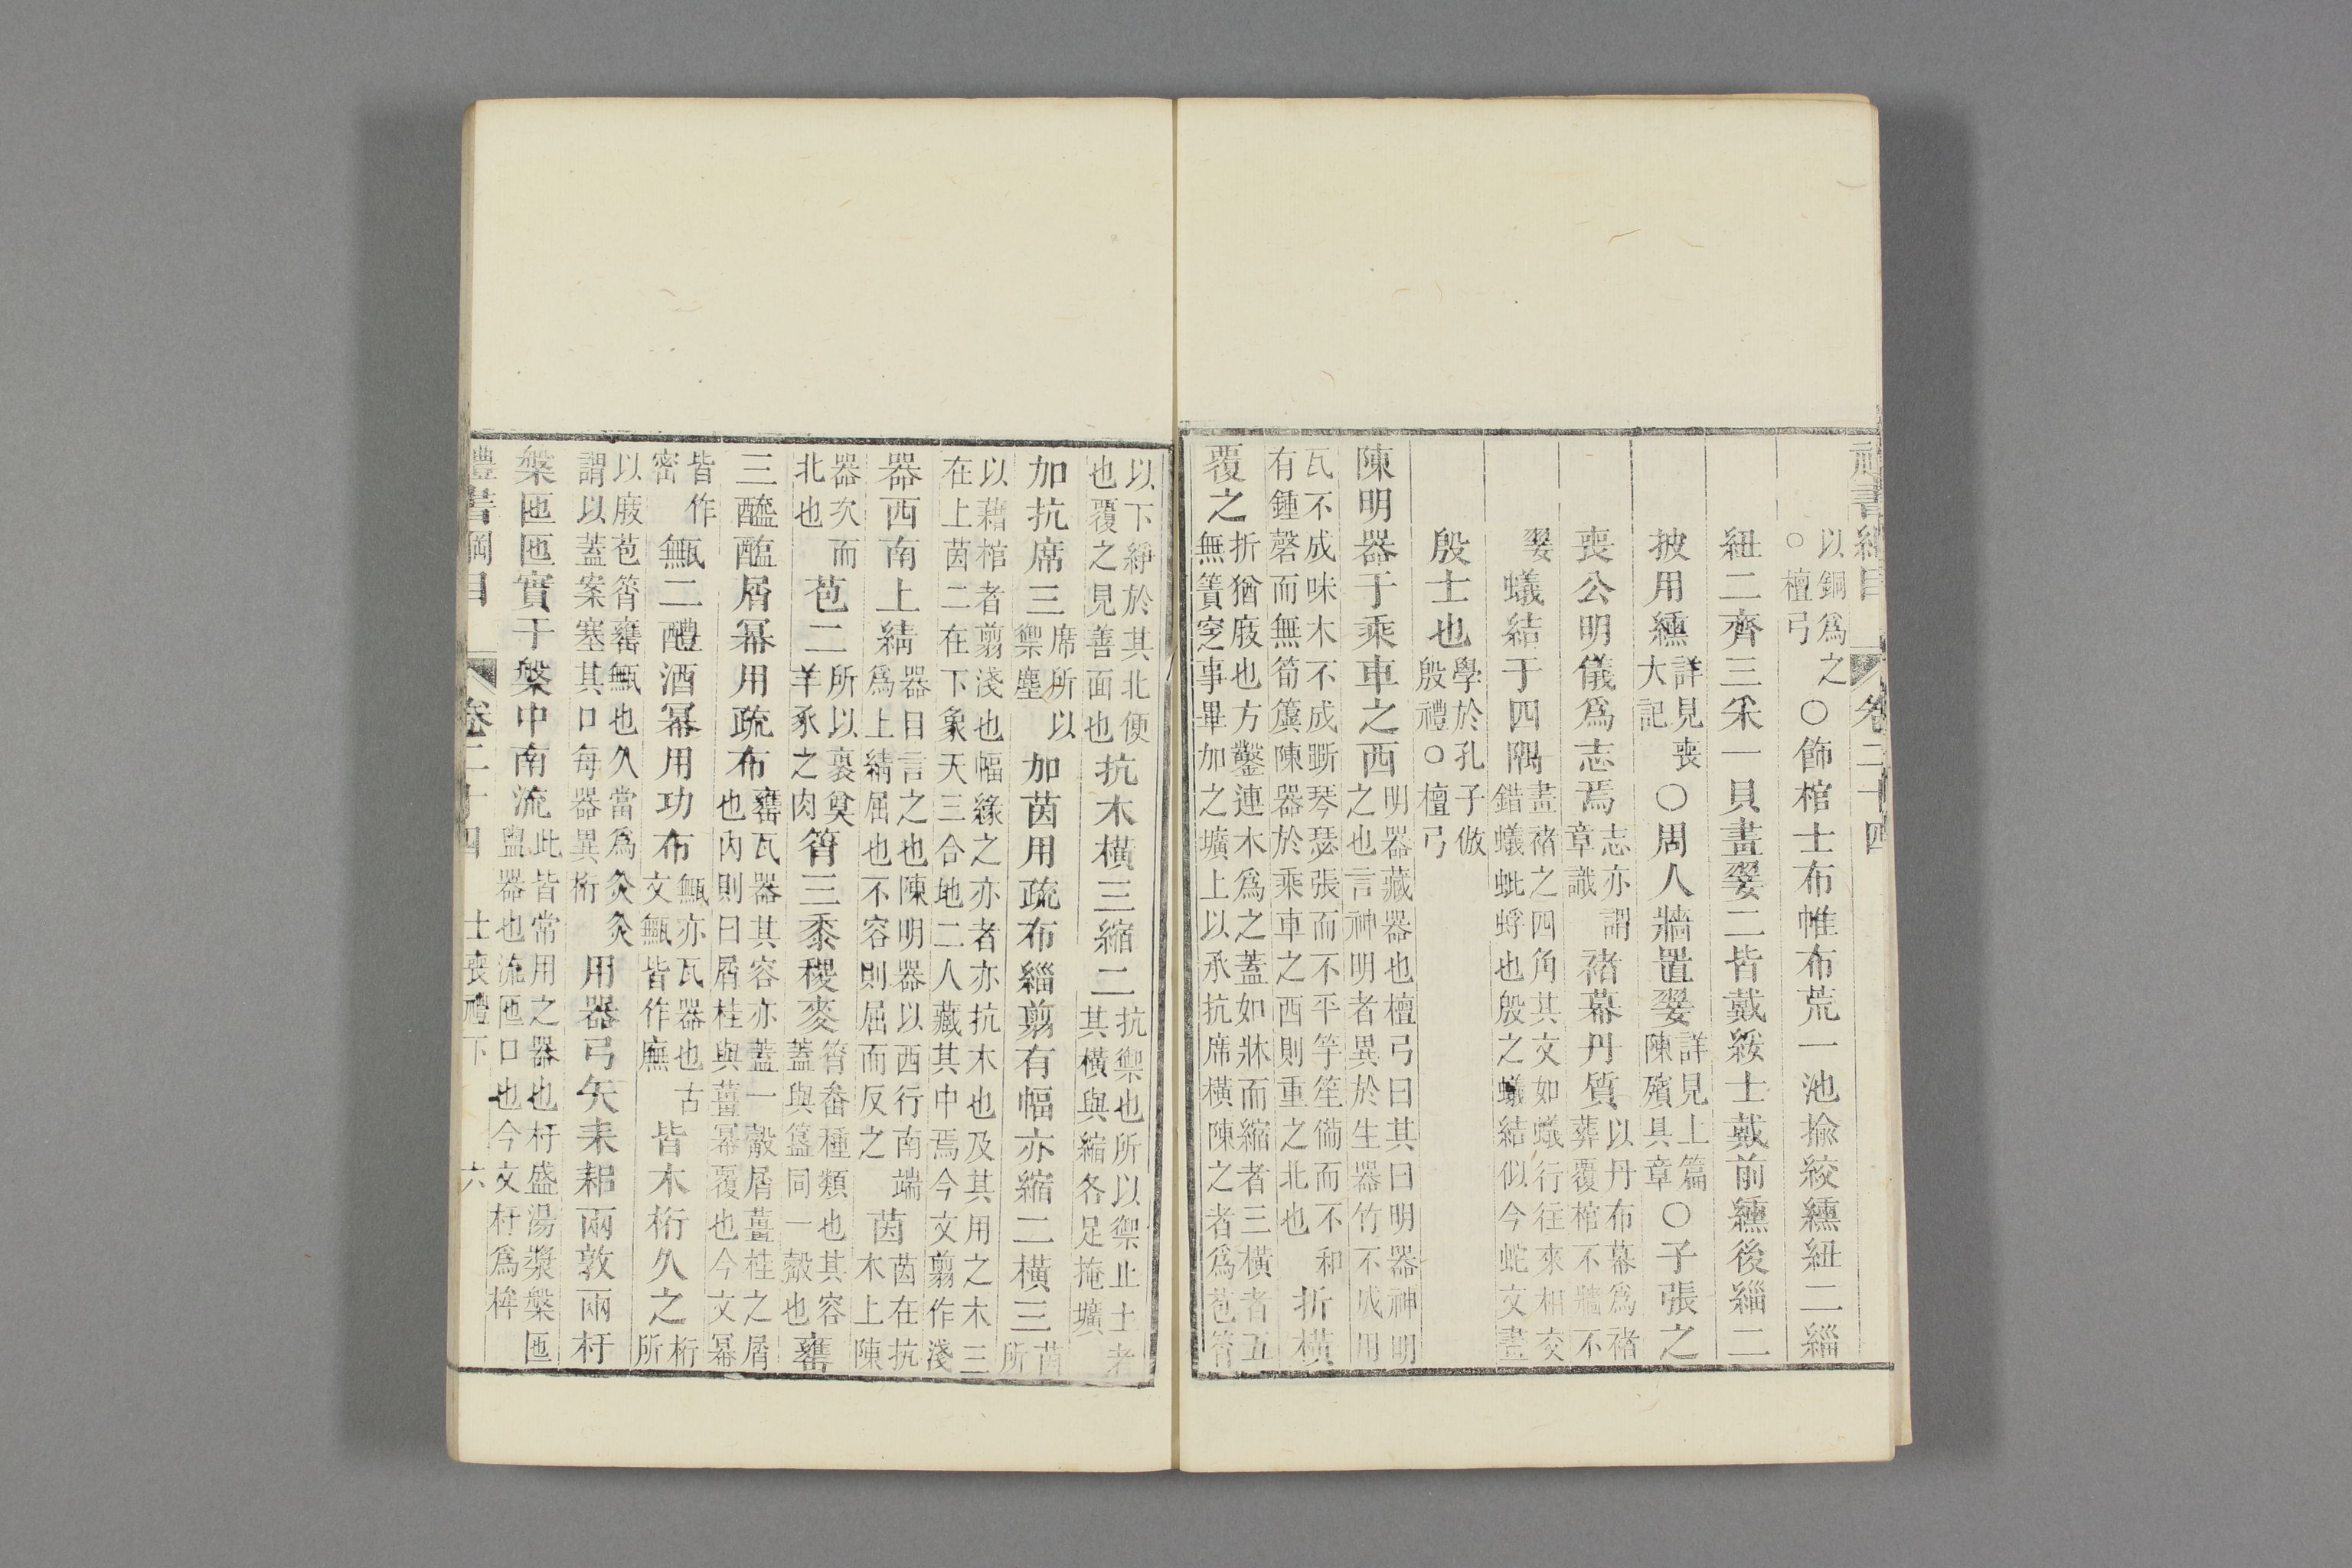 禮書綱目 卷二十四
以銅爲之○檀弓○飾棺士布帷布荒一池揄絞纁紐二緇
紐二齊三采一貝畫翣二皆戴綏士戴前纁後緇二
披用纁詳見喪大記○周人牆置翣詳見上篇陳殯具章○子張之
喪公明儀爲志焉志亦謂章識褚幕丹質以丹布幕爲褚葬覆棺不牆不
翣蟻結于四隅畫褚之四角其文如蟻行往來相交錯蟻蚍蜉也殷之蟻結似今蛇文畫
殷士也學於孔子倣殷禮○檀弓
陳明器于乘車之西明器藏器也檀弓曰其曰明器神明之也言神明者異於生器竹不成用
瓦不成味木不成斲琴瑟張而不平竽笙備而不和有鍾磬而無筍簴陳器於乘車之西則重之北也折橫
覆之折猶庪也方鑿連木爲之蓋如牀而縮者三橫者五無簀窆事畢加之壙上以承抗席橫陳之者爲苞筲
以下綪於其北便也覆之見善面也抗木橫三縮二抗禦也所以禦止土者其橫與縮各足掩壙
加抗席三席所以禦塵加茵用疏布緇翦有幅亦縮二橫三茵所
以藉棺者翦淺也幅緣之亦者亦抗木也及其用之木三在上茵二在下象天三合地二人藏其中焉今文翦作淺
器西南上綪器目言之也陳明器以西行南端爲上綪屈也不容則屈而反之茵茵在抗木上陳
器次而北也苞二所以裹奠羊豕之肉筲三黍稷麥筲畚種類也其容蓋與簋同一觳也罋
三醯醢屑冪用疏布罋瓦器其容亦蓋一觳屑薑桂之屑也內則曰屑桂與薑冪覆也今文冪
皆作密甒二醴酒冪用功布甒亦瓦器也古文甒皆作廡皆木桁久之桁所
以庪苞筲罋甒也久當爲灸灸謂以蓋案塞其口每器異桁用器弓矢耒耜兩敦兩杅
槃匜匜實于槃中南流此皆常用之器也杅盛湯漿槃匜盥器也流匜口也今文杅爲桙
禮書綱目 卷二十四 士喪禮下 六